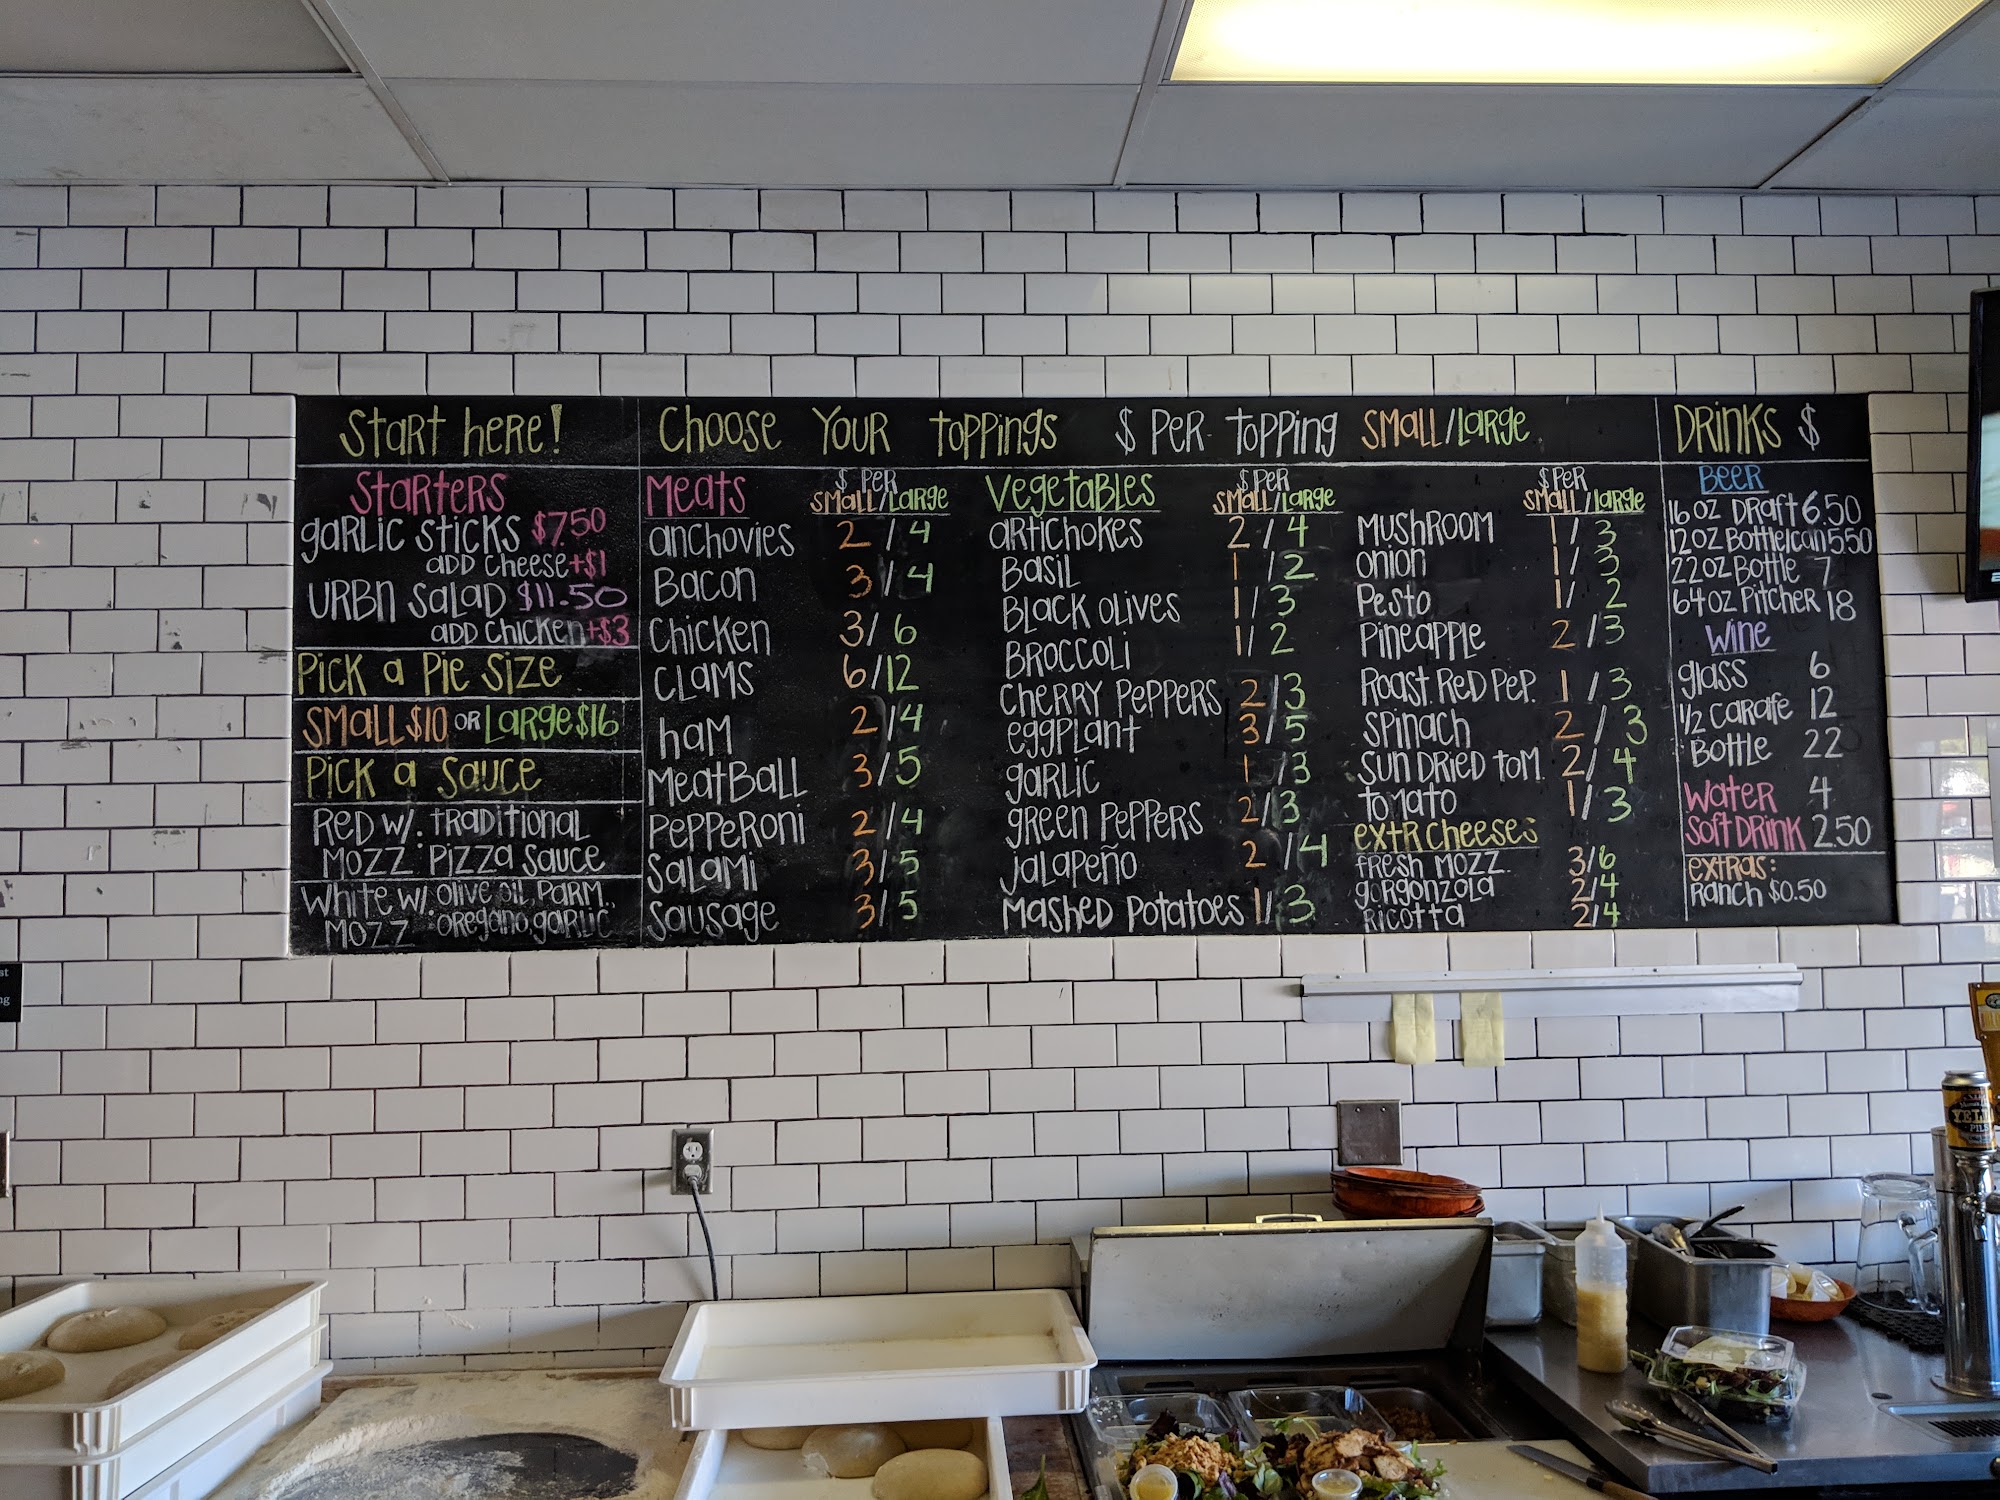 Start here!
Starters
garlic sticks $7.50
add cheese +$1
URBN Salad $11.50
add chicken +$3
Pick a Pie Size
Small $10 or Large $16
Pick a Sauce
Red w/. traditional
Mozz. Pizza Sauce
White w/. olive oil, Parm.,
Mozz. oregano, garlic
Choose Your toppings $ Per topping Small/Large
Meats $ Per Small/Large
anchovies 2/4
Bacon 3/4
Chicken 3/6
Clams 6/12
ham 2/4
Meatball 3/5
Pepperoni 2/4
Salami 3/5
Sausage 3/5
Vegetables $ Per Small/Large
artichokes 2/4
Basil 1/2
Black olives 1/3
Broccoli 1/2
Cherry Peppers 2/3
eggplant 3/5
garlic 1/3
green Peppers 2/3
jalapeño 2/4
Mashed Potatoes 1/3
$ Per Small/Large
Mushroom 1/3
onion 1/3
Pesto 1/2
Pineapple 2/3
Roast. Red Pep. 1/3
Spinach 2/3
Sun Dried tom. 2/4
tomato 1/3
extr cheeses:
fresh mozz. 3/6
gorgonzola 2/4
Ricotta 2/4
Drinks $
Beer
16 oz Draft 6.50
12 oz Bottle/can 5.50
22 oz Bottle 7
64 oz Pitcher 18
Wine
glass 6
1/2 Carafe 12
Bottle 22
Water 4
Soft Drink 2.50
extras:
Ranch $0.50